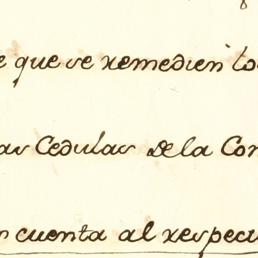 e que se remedien to
as Cedulas de la Con
n cuenta al respec